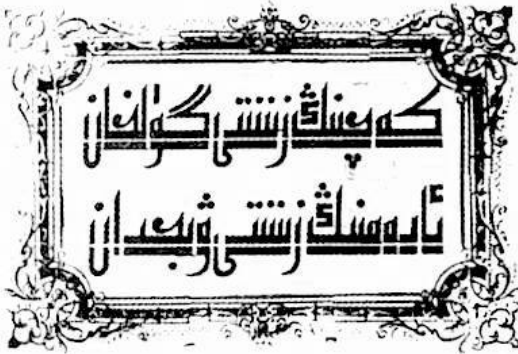 كەچنىڭ زىننىتى گۈلخان
ئادەمنىڭ زىننىتى ۋىجدان